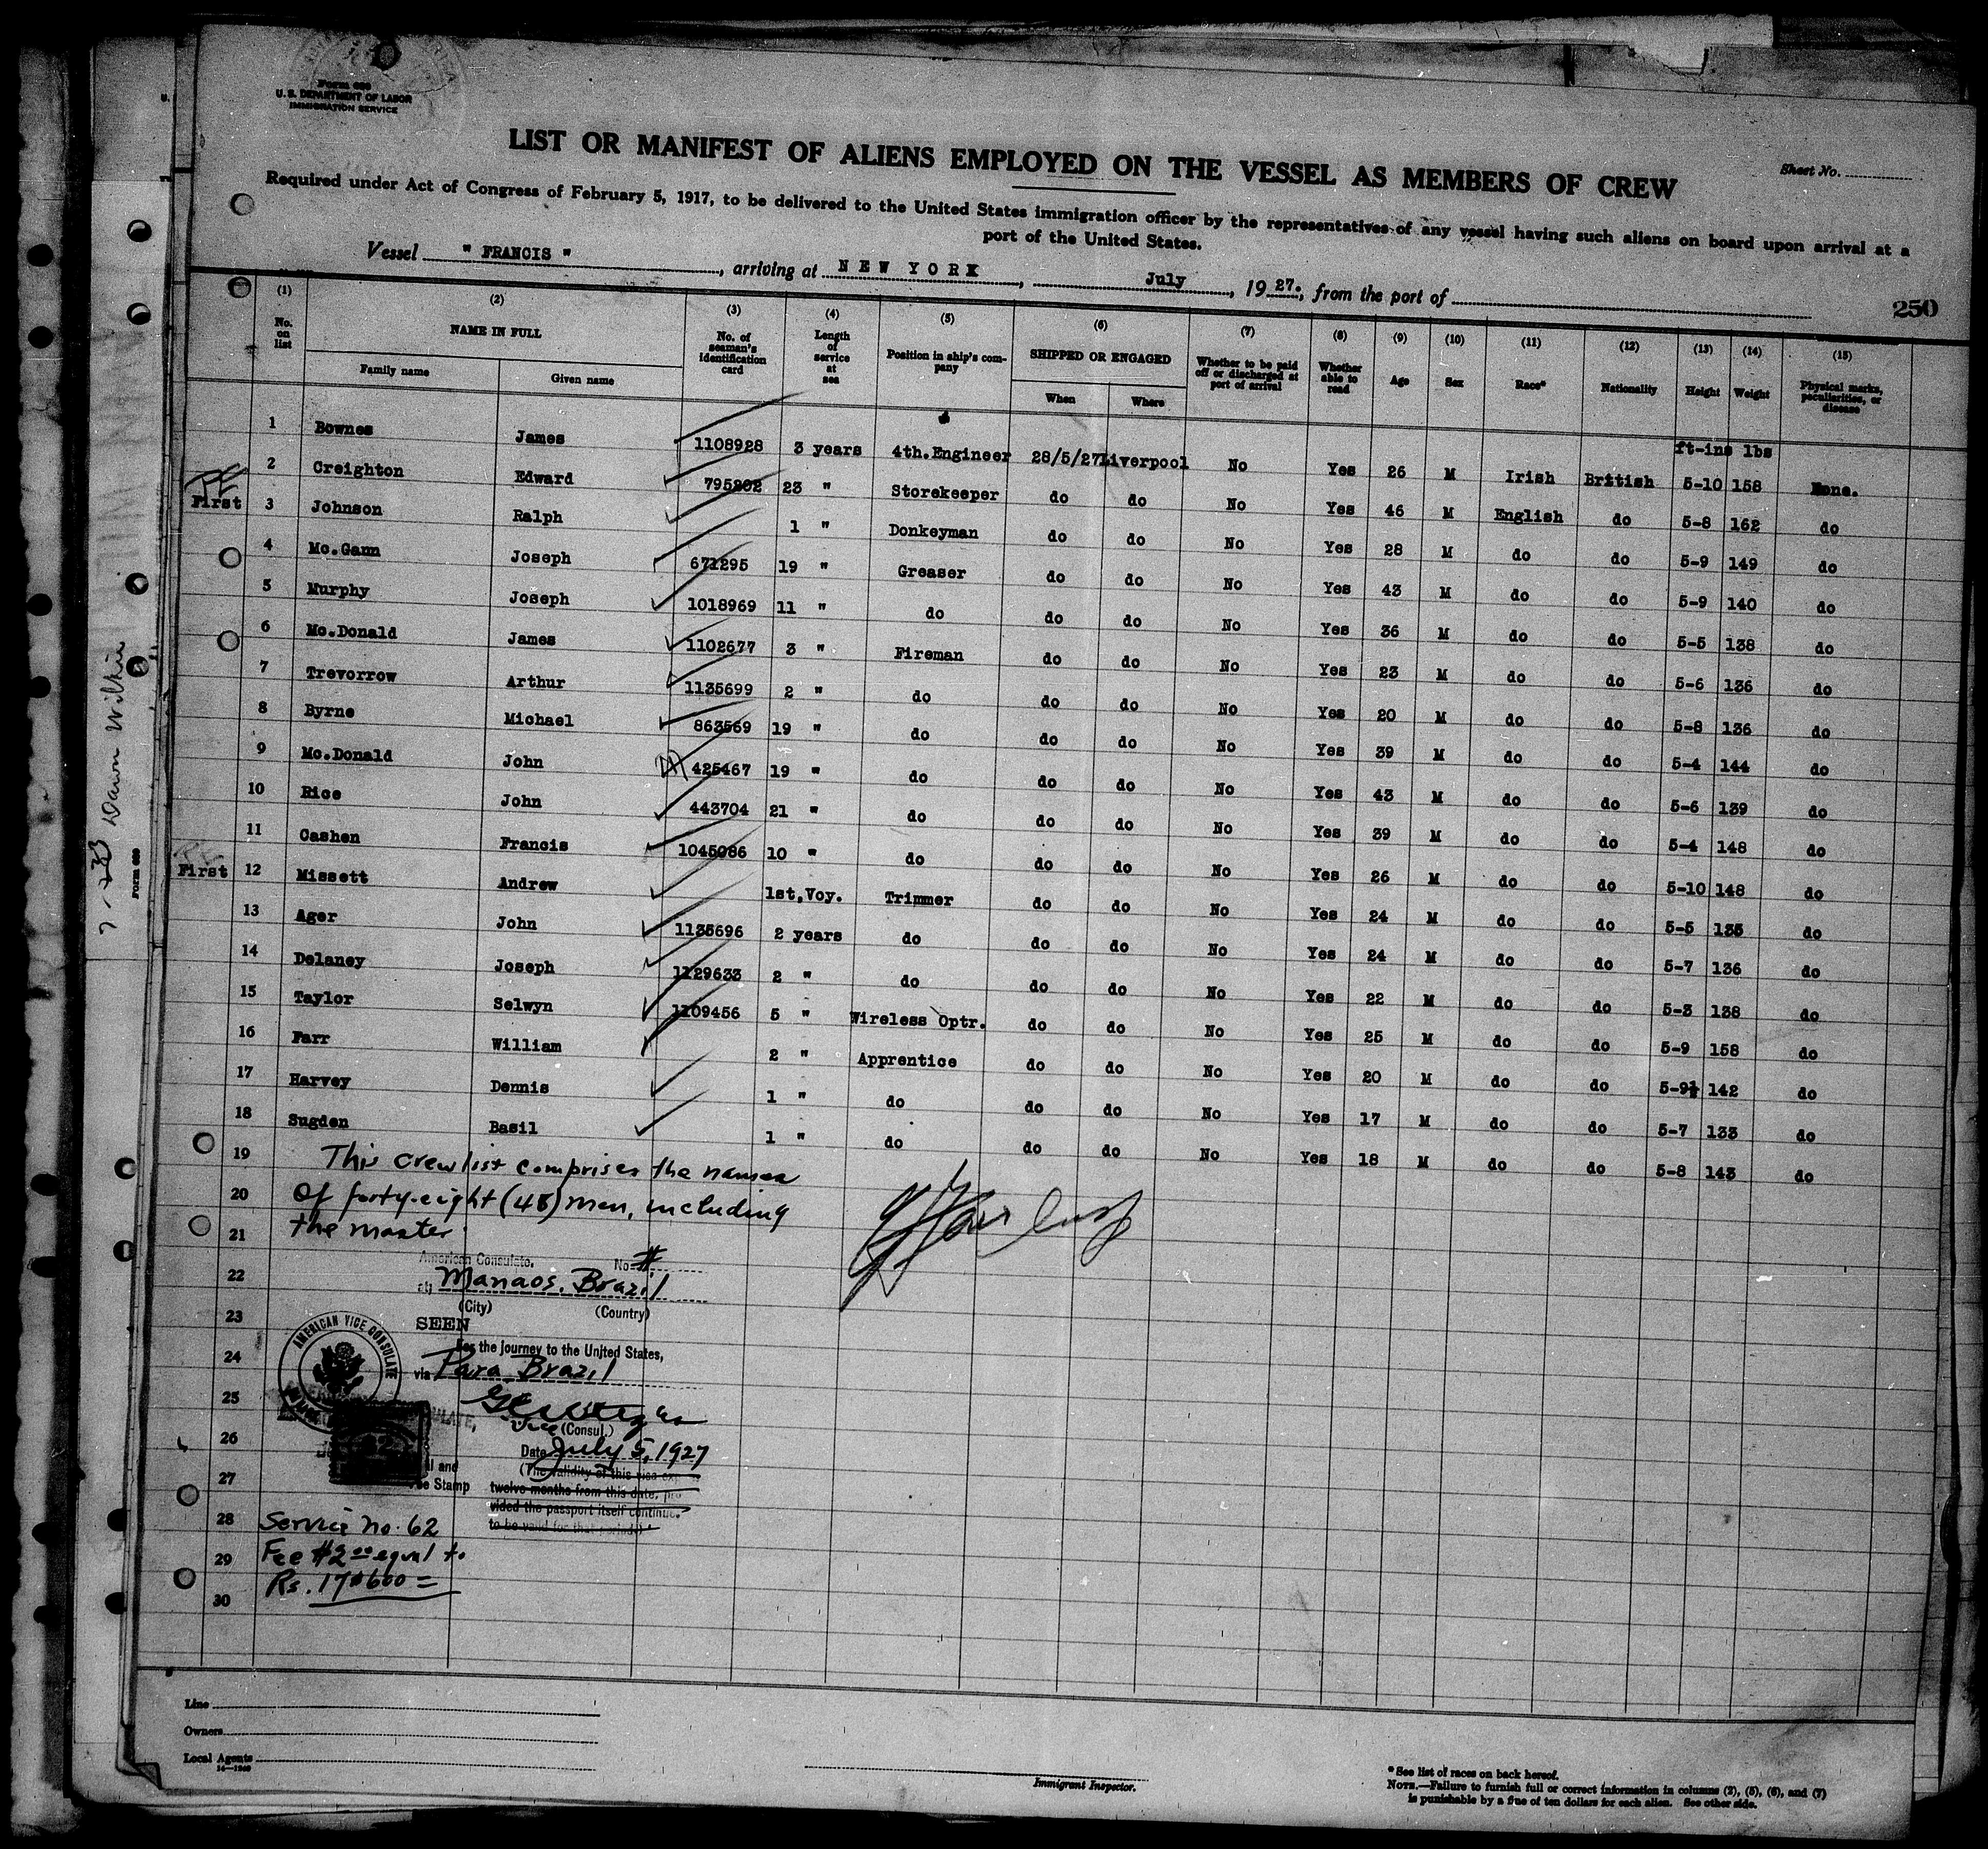 Form 689
U. S. DEPARTMENT OF LABOR
IMMIGRATION SERVICE
LIST OR MANIFEST OF ALIENS EMPLOYED ON THE VESSEL AS MEMBERS OF CREW
Sheet No.
Required under Act of Congress of February 5, 1917, to be delivered to the United States immigration officer by the representatives of any vessel having such aliens on board upon arrival at a
port of the United States.
Vessel " FRANCIS " , arriving at NEW YORK , July , 19 27. , from the port of
250
(1) (2) (3) (4) (5) (6) (7) (8) (9) (10) (11) (12) (13) (14) (15)
No. on list NAME IN FULL No. of seaman's identification card Length of service at sea Position in ship's company SHIPPED OR ENGAGED Whether to be paid off or discharged at port of arrival Whether able to read Age Sex Race* Nationality Height Weight Physical marks, peculiarities, or disease
Family name Given name When Where
ft-ins lbs
1 Bownes James 1108928 3 years 4th.Engineer 28/5/27 Liverpool No Yes 26 M Irish British 5-10 158 None.
2 Creighton Edward 795202 23 " Storekeeper do do No Yes 46 M English do 5-8 162 do
First 3 Johnson Ralph 1 " Donkeyman do do No Yes 28 M do do 5-9 149 do
4 Mc.Gann Joseph 671295 19 " Greaser do do No Yes 43 M do do 5-9 140 do
5 Murphy Joseph 1018969 11 " do do do No Yes 36 M do do 5-5 138 do
6 Mc.Donald James 1102677 3 " Fireman do do No Yes 23 M do do 5-6 136 do
7 Trevorrow Arthur 1135699 2 " do do do No Yes 20 M do do 5-8 136 do
8 Byrne Michael 863569 19 " do do do No Yes 39 M do do 5-4 144 do
9 Mc.Donald John 425467 19 " do do do No Yes 43 M do do 5-6 139 do
10 Rice John 443704 21 " do do do No Yes 39 M do do 5-4 148 do
11 Cashen Francis 1045086 10 " do do do No Yes 26 M do do 5-10 148 do
First 12 Missett Andrew 1st,Voy. Trimmer do do No Yes 24 M do do 5-5 135 do
13 Ager John 1135696 2 years do do do No Yes 24 M do do 5-7 136 do
14 Delaney Joseph 1129633 2 " do do do No Yes 22 M do do 5-3 138 do
15 Taylor Selwyn 1109456 5 " Wireless Optr. do do No Yes 25 M do do 5-9 158 do
16 Farr William 2 " Apprentice do do No Yes 20 M do do 5-9½ 142 do
17 Harvey Dennis 1 " do do do No Yes 17 M do do 5-7 133 do
18 Sugden Basil 1 " do do do No Yes 18 M do do 5-8 143 do
19 This crew list comprises the names
20 of forty-eight (48) men, including
21 the master.
American Consulate. No.
22 at Manaos, Brazil
(City) (Country)
23 SEEN
AMERICAN VICE CONSULATE
For the journey to the United States,
24 via Para Brazil
25
Vice (Consul.)
26 Date July 5, 1927
27 (The validity of this visa
Fee Stamp twelve months from this date, pro
vided the passport itself continues
to be valid for that period.)
28 Service no. 62
29 Fee $2.00 equal to
Rs. 17$600 =
30
Line
Owners
Local Agents
Immigrant Inspector.
* See list of races on back hereof.
NOTE.—Failure to furnish full or correct information in columns (2), (5), (6), and (7)
is punishable by a fine of ten dollars for each alien. See other side.
Dawn Wilkie
Form 689